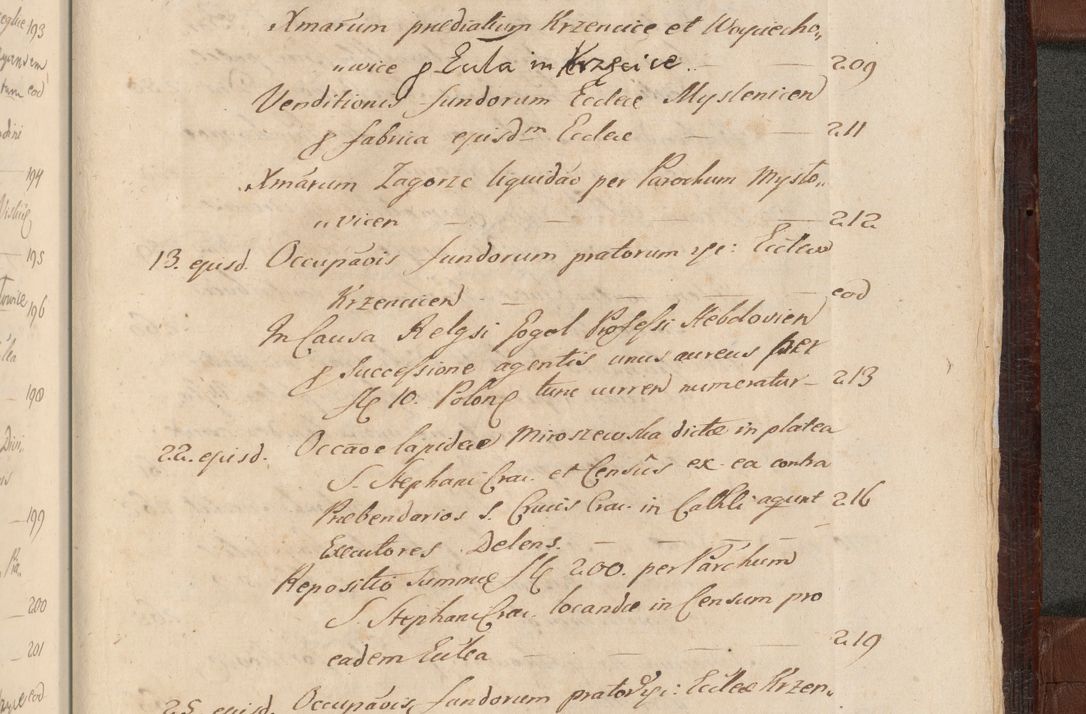 Xmarum prædiatium Krzencice et Woyciecho„
„wice p Eccla in Krzęcice. 209
Venditionis fundorum Ecclæ Myslenicen
p fabrica ejusdm Ecclæ 211
Xmarum Zagorze liquidāō per Parochum Mysło„
„vicen 212
13. ejusd. Occupāōis fundorum pratorum Ecclæ
Krzencicen eod
In Causa Relgsi Professi Hebdovien
p Successione agentis unus aureus per
fl 10. Polon tunc curren numeratur 213
22. ejusd. Occāōe lapideæ Miroszewska dictæ in platea
S. Stephani Crac. et Censûs ex ea contra
Præbendarios S. Crucis Crac. in Cathli agunt 216
Executores Delens.
Repositio summæ fl 200. per Parchum
S. Stephani Crac. locandæ in Censum pro
eadem Ecclea 219
25 ejusd. Occupāōis fundorum prator Ecclæ Krzen„
193
eod
194
195
196
198
199
200
201
eod